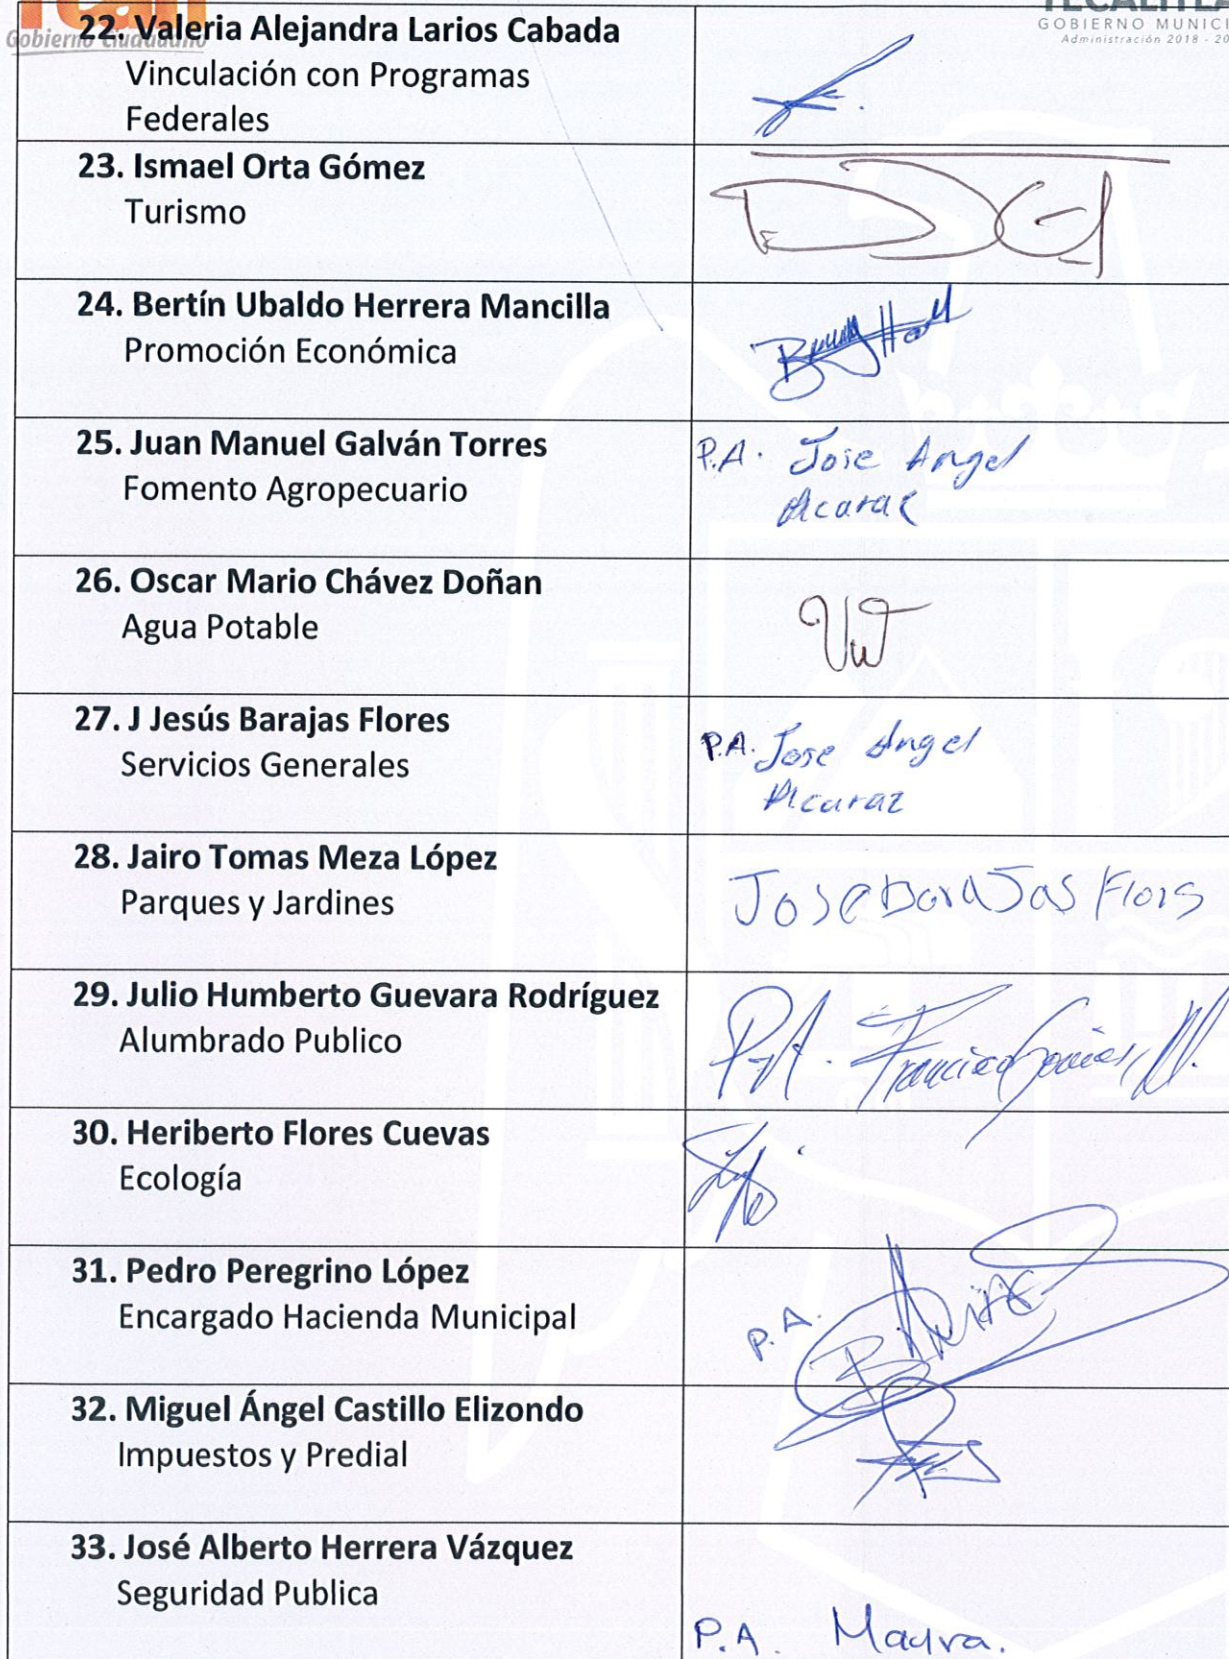 Gobierno Ciudadano
TECALITLÁN
GOBIERNO MUNICI
Administración 2018 - 20
22. Valeria Alejandra Larios Cabada
Vinculación con Programas
Federales
23. Ismael Orta Gómez
Turismo
24. Bertín Ubaldo Herrera Mancilla
Promoción Económica
25. Juan Manuel Galván Torres
Fomento Agropecuario
P.A. Jose Angel
Alcaraz
26. Oscar Mario Chávez Doñan
Agua Potable
27. J Jesús Barajas Flores
Servicios Generales
P.A. Jose Angel
Alcaraz
28. Jairo Tomas Meza López
Parques y Jardines
Jose BaraJas Flors
29. Julio Humberto Guevara Rodríguez
Alumbrado Publico
P.A. Francisco
30. Heriberto Flores Cuevas
Ecología
31. Pedro Peregrino López
Encargado Hacienda Municipal
P.A.
32. Miguel Ángel Castillo Elizondo
Impuestos y Predial
33. José Alberto Herrera Vázquez
Seguridad Publica
P.A. Mayra.